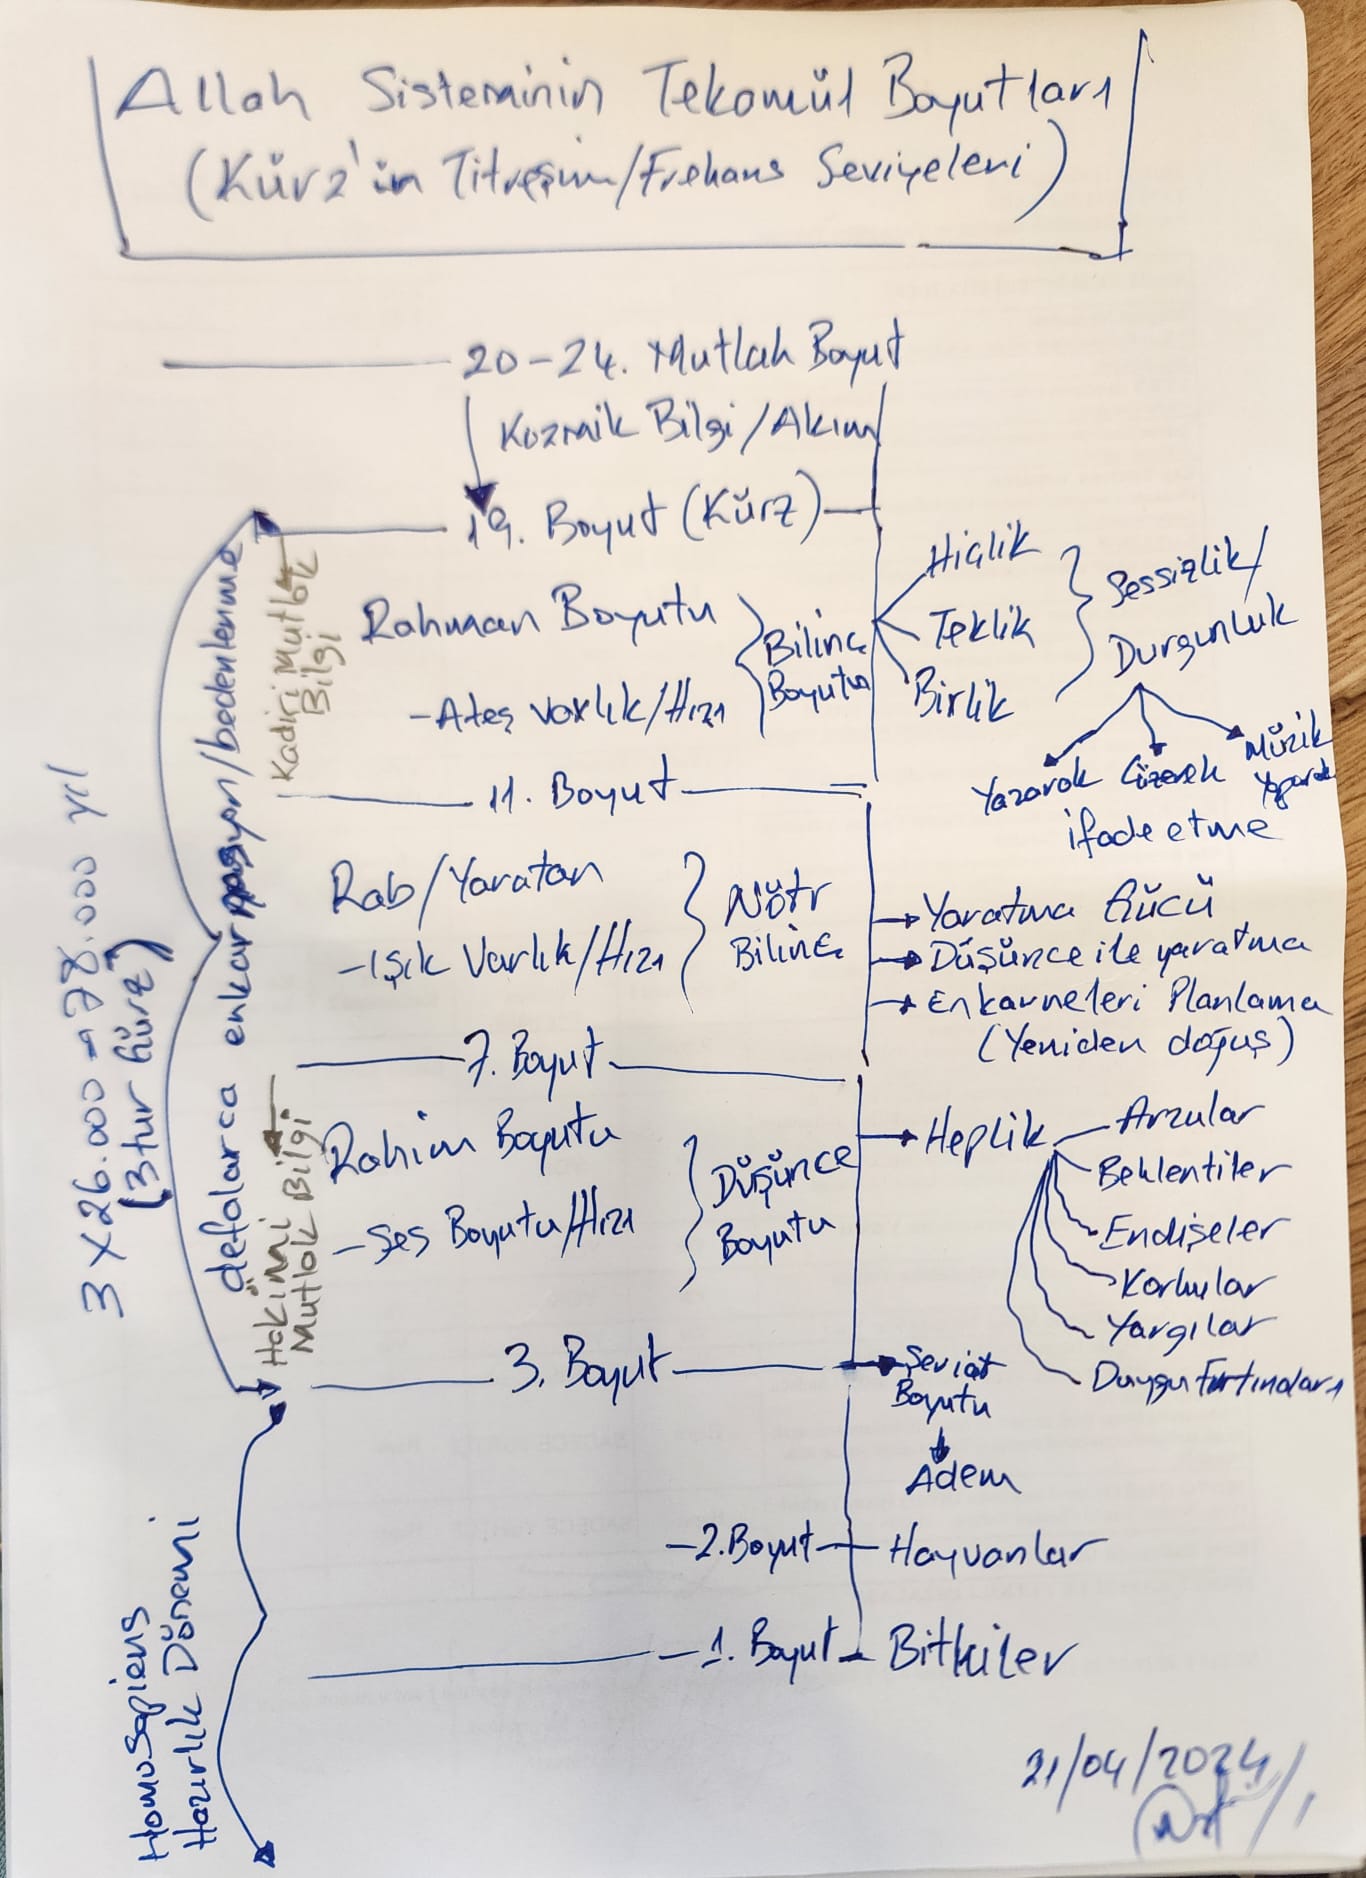 Allah Sisteminin Tekamül Boyutları
(Kürz'ün Titreşim/Frekans Seviyeleri)
20-24. Mutlak Boyut
Kozmik Bilgi/Akım
19. Boyut (Kürz)
Rahman Boyutu
-Ateş Varlık/Hızı
Bilinç
Boyutu
Hiçlik
Teklik
Birlik
Sessizlik/
Durgunluk
Yazarak Çizerek Müzik
Yaparak
ifade etme
11. Boyut
Rab/Yaratan
-Işık Varlık/Hızı
Nötr
Bilinç
Yaratma Gücü
Düşünce ile yaratma
Enkarneleri Planlama
(Yeniden doğuş)
7. Boyut
Rahim Boyutu
-Ses Boyutu/Hızı
Düşünce
Boyutu
Heplik
Arzular
Beklentiler
Endişeler
Korkular
Yargılar
Duygu Fırtınaları
3. Boyut
Şeriat
Boyutu
Adem
-2. Boyut - Hayvanlar
-1. Boyut - Bitkiler
3 X 26.000 → 78.000 yıl
(3 tur Gürz)
defalarca enkarnasyon/bedenlenme
Kadiri Mutlak
Bilgi
Hakimi
Mutlak Bilgi
Homo Sapiens
Hazırlık Dönemi
21/04/2024